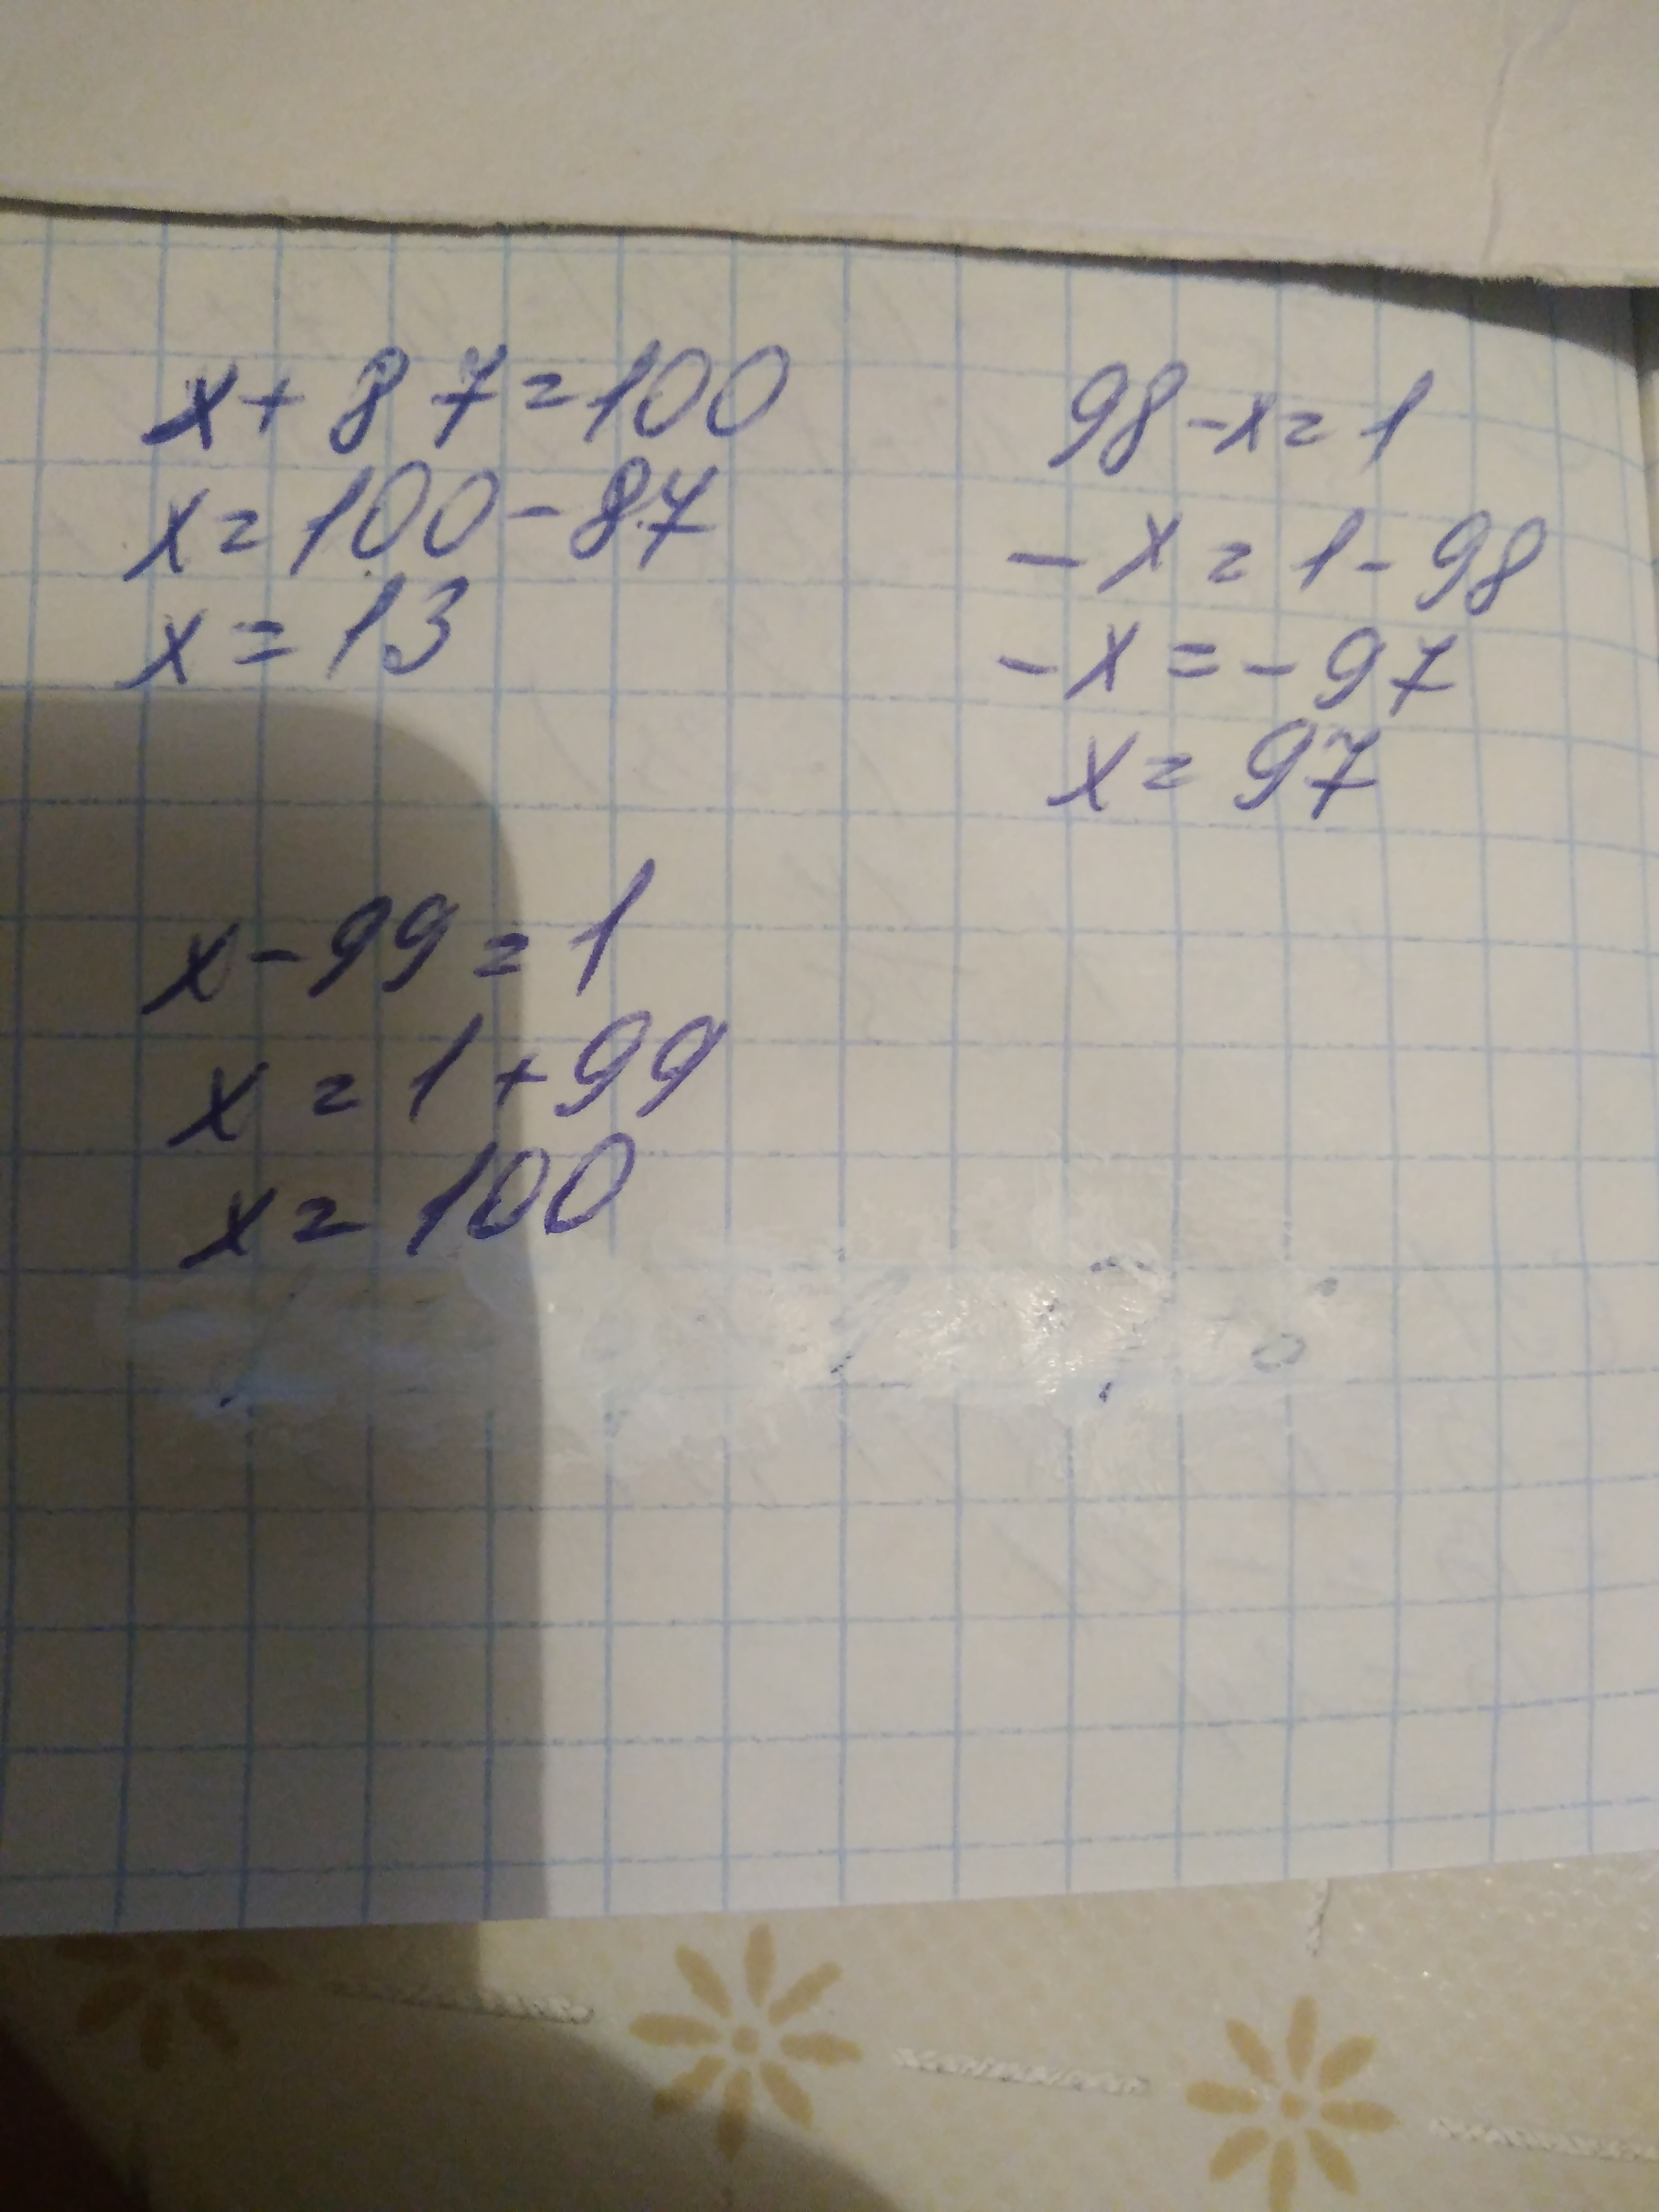 x + 87 = 100
x = 100 - 87
x = 13
98 - x = 1
- x = 1 - 98
- x = - 97
x = 97
x - 99 = 1
x = 1 + 99
x = 100